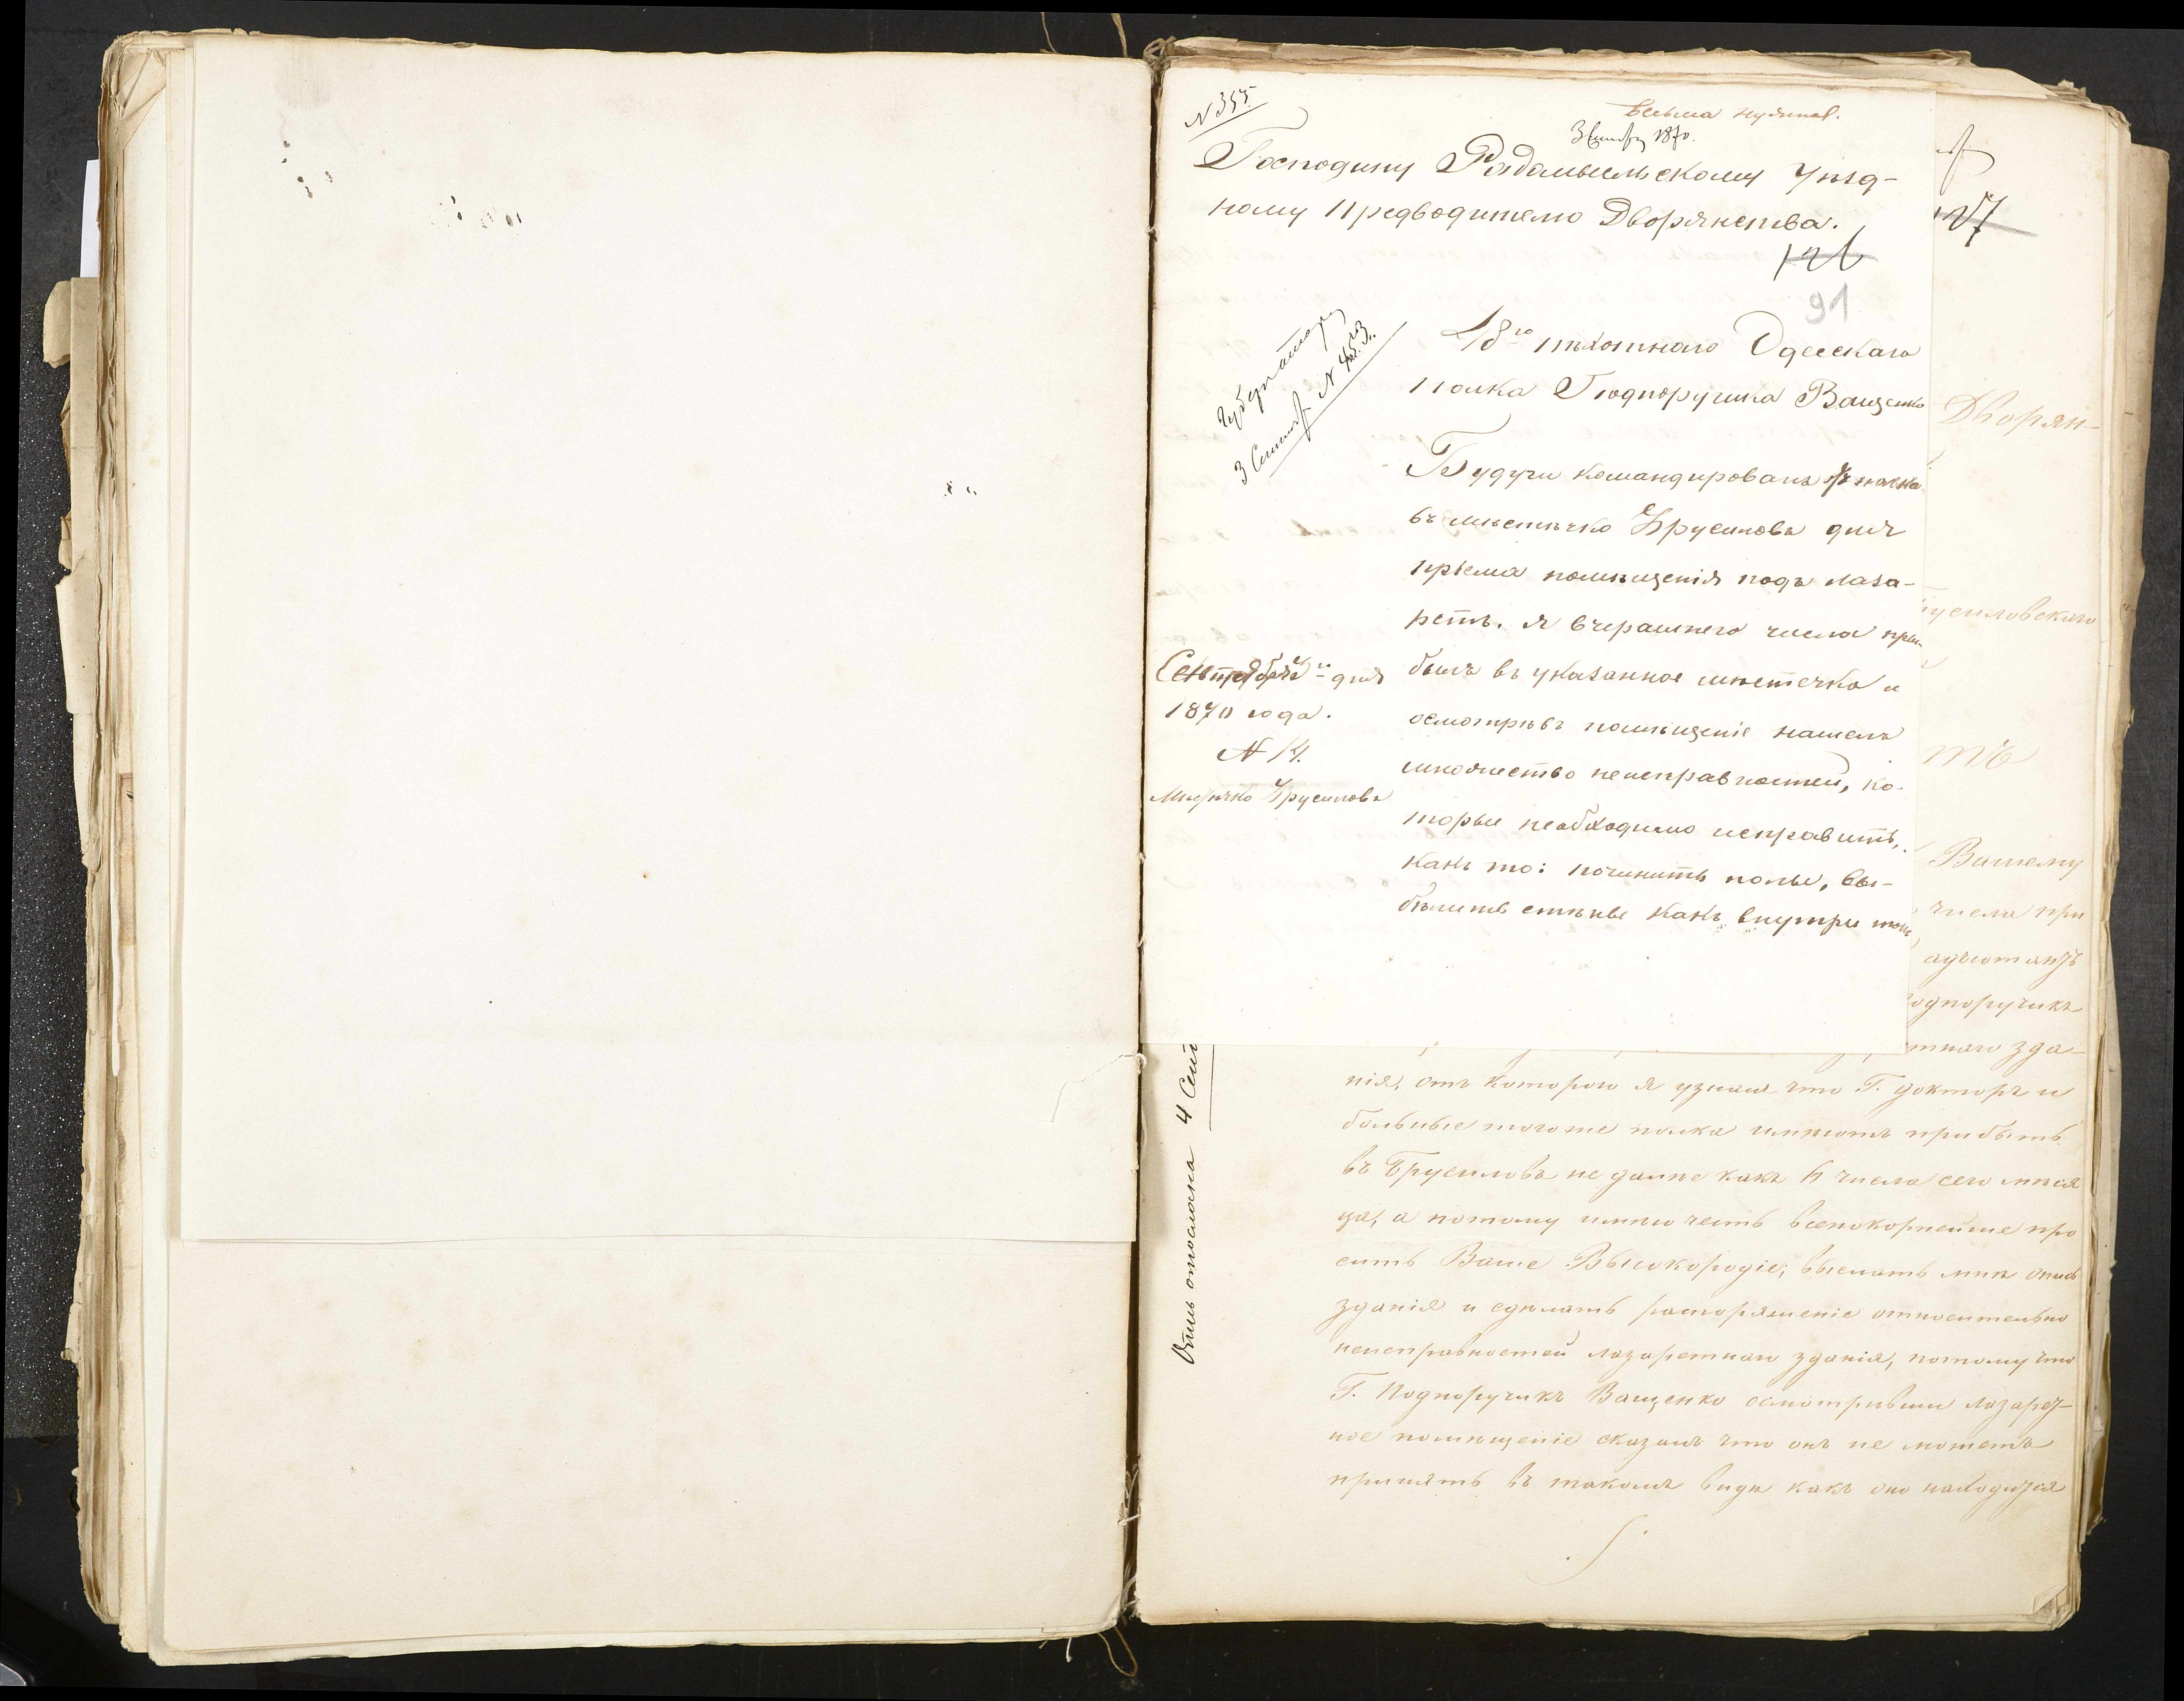 N 355
Весьма нужное.
3 Сентбр 1870.
Господину Радомысльскому Уѣзд-
ному Предводителю Дворянства.
126
91
48го пѣхотнаго Одесскаго
полка Подпоручика Ващенко
Губернатору
3 Сентяб N 453.
Будучи командированъ
въ мѣстѣчко Брусиловъ для
пріема помѣщенія подъ лаза-
ретъ. я вчерашнего числа при-
былъ въ указанное мѣстечко и
осмотрѣвъ помѣщеніе нашелъ
множество неисправностей, ко-
торые необходимо исправить,
какъ то: починить полы, вы-
бѣлить стѣны какъ внутри
Сентября дня
1870 года.
N 14.
Мѣстѣчко Брусиловъ
127
Дворян-
русиловскаго
тъ
Вашему
числа при
адъютантъ
Подпоручикъ
тнаго зда-
нія, отъ котораго я узналъ что Г. докторъ и
больные тогоже полка имѣютъ прибыть
въ Брусиловъ не далѣе какъ 6 числа сего мѣся
ца, а потому имѣю честь всепокорнейше про
сить Ваше Высокородіе; выслать мнѣ опись
зданія и сдѣлать распоряженіе относительно
неисправностей лазаретнаго зданія, потому что
Г. Подпоручикъ Ващенко осмотрѣвши лазарет-
ное помѣщеніе сказалъ что онъ не можетъ
принять въ такомъ видѣ какъ оно находится
Опись отослана 4 Сент